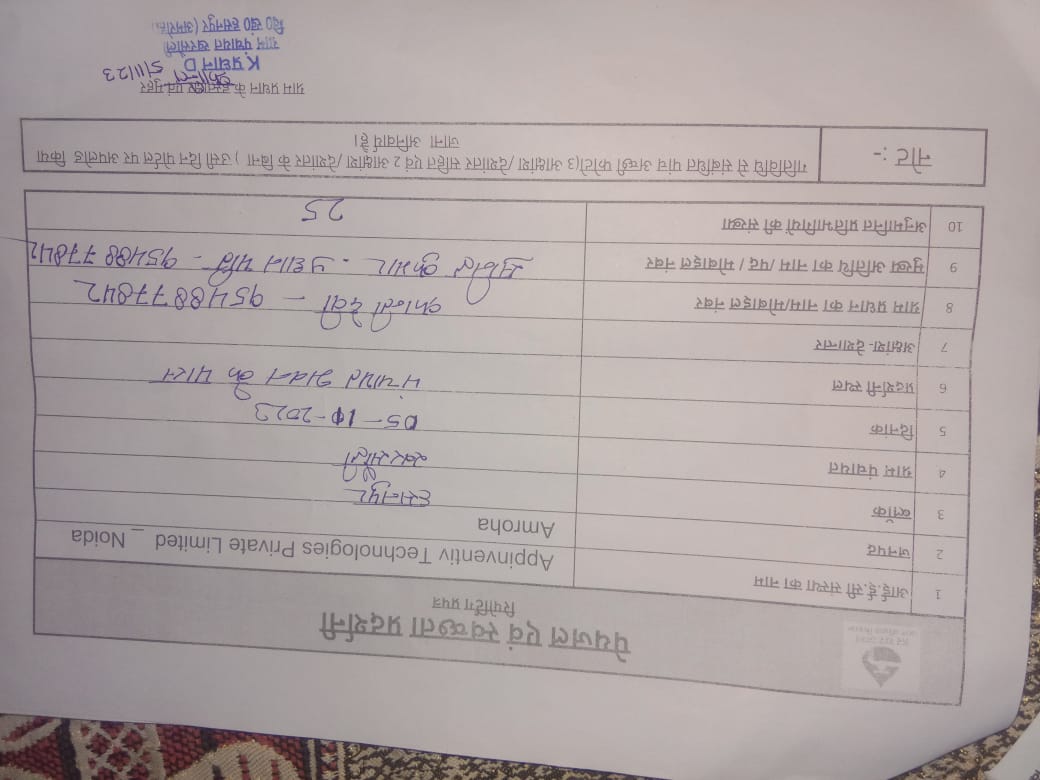 पेयजल एवं स्वच्छता प्रदर्शनी
रिपोर्टिंग प्रपत्र
1 आई.ई.सी संस्था का नाम Appinventiv Technologies Private Limited _ Noida
2 जनपद Amroha
3 ब्लॉक हसनपुर
4 ग्राम पंचायत खरसोली
5 दिनांक 05-11-2023
6 प्रदर्शनी स्थल पंचायत भवन के पास
7 अक्षांश- देशान्तर
8 ग्राम प्रधान का नाम/मोबाइल नंबर देवी - 9548877842
9 मुख्य अतिथि का नाम /पद / मोबाइल नंबर कुमार - प्रधान पति - 9548877842
10 अनुमानित प्रतिभागियों की संख्या 25
नोट :- गतिविधि से संबंधित पांच अच्छी फोटो(3 आक्षांश /देशांतर सहित एवं 2 आक्षांश /देशांतर के बिना ) उसी दिन पोर्टल पर अपलोड किया
जाना अनिवार्य है।
ग्राम प्रधान के हस्ताक्षर एवं मुहर
5/11/23
प्रधान
ग्राम पंचायत खरसोली
वि0 ख0 हसनपुर (अमरोहा)